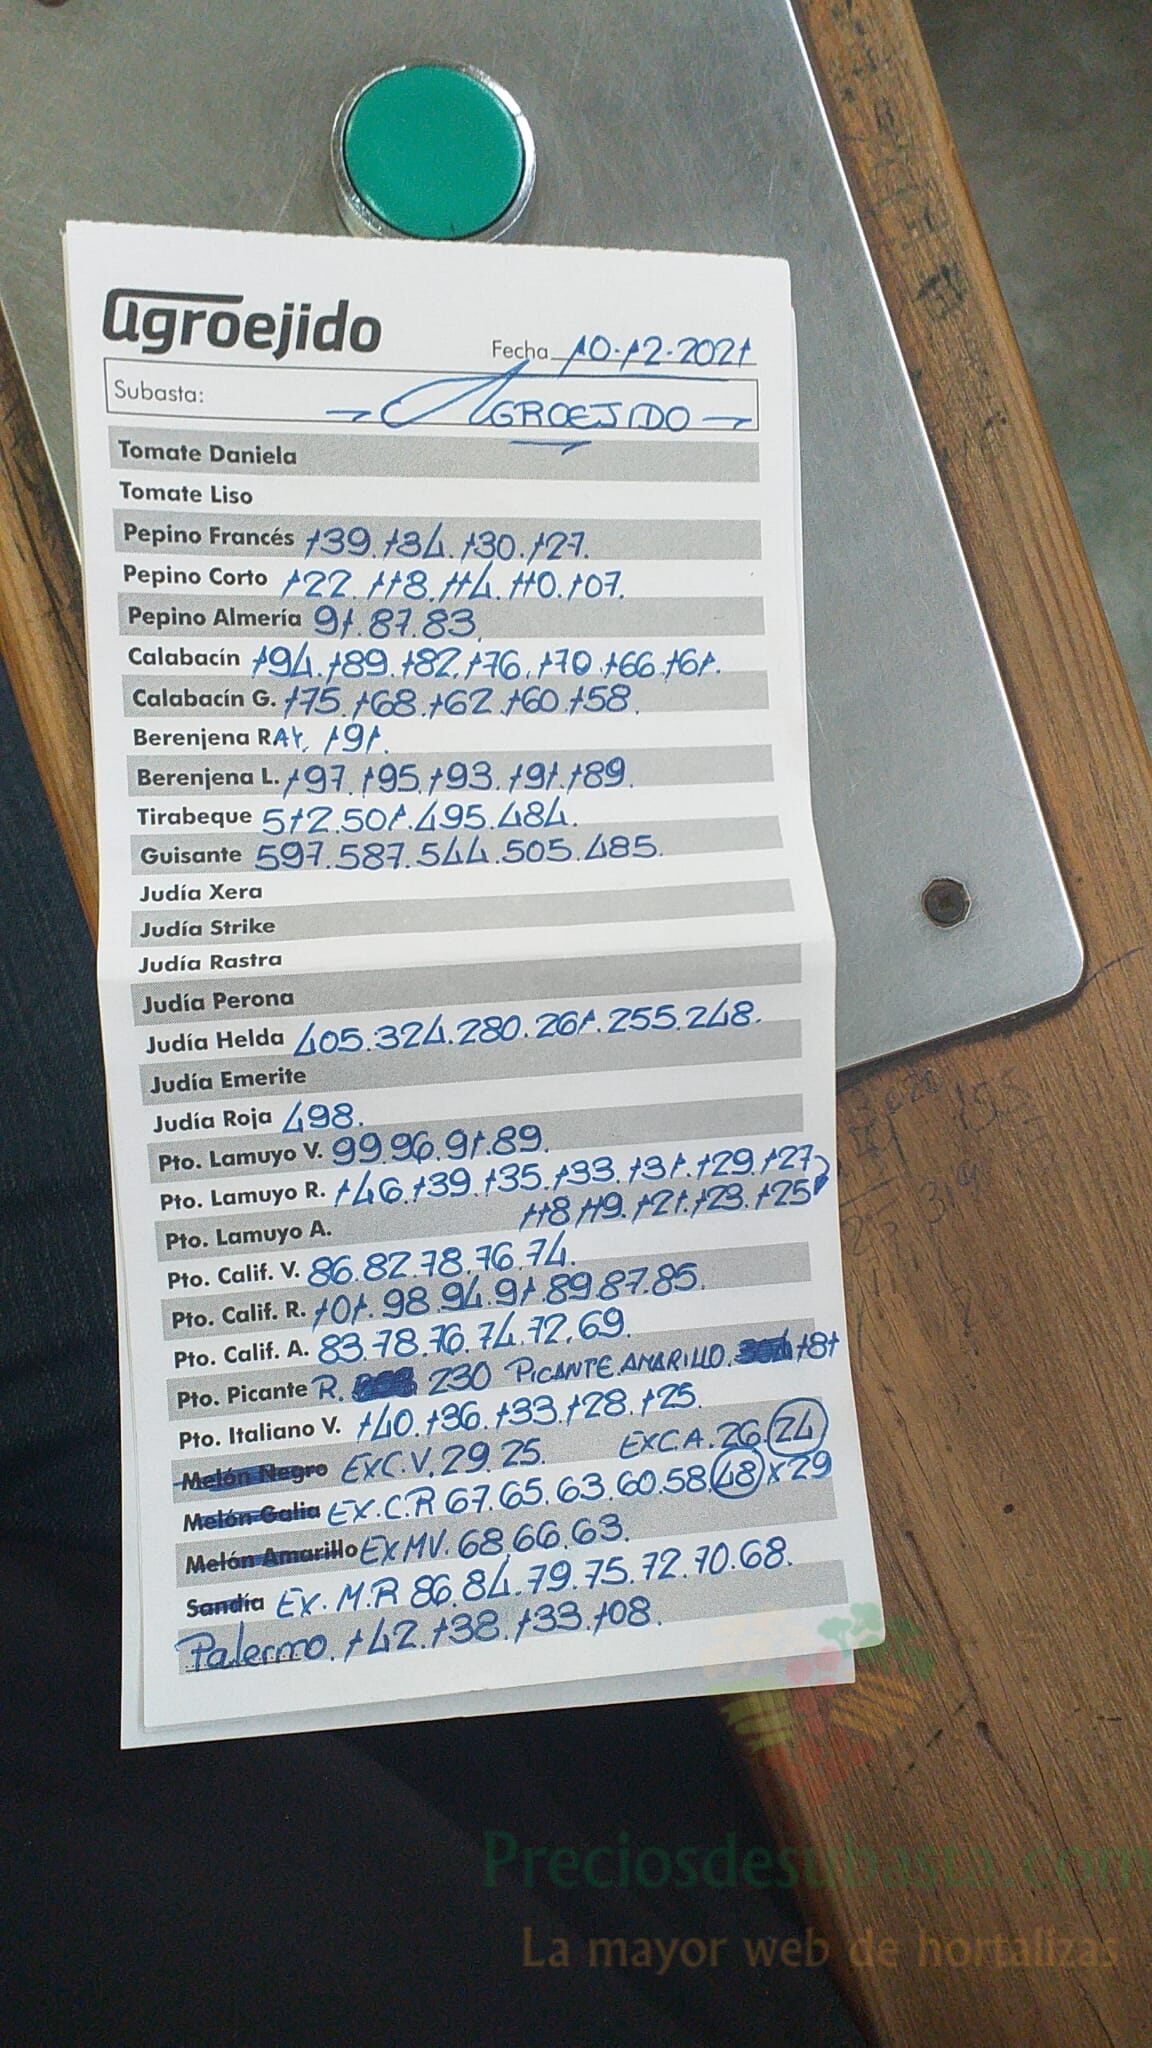 agroejido
Fecha 10.12.2021
Subasta: → AGROEJIDO →
Tomate Daniela
Tomate Liso
Pepino Francés 139.134.130.127.
Pepino Corto 122.118.114.110.107.
Pepino Almería 91.87.83.
Calabacín 194.189.182.176.170.166.161.
Calabacín G. 175.168.162.160.158.
Berenjena RAY. 191.
Berenjena L. 197.195.193.191.189.
Tirabeque 512.501.495.484.
Guisante 597.587.544.505.485.
Judía Xera
Judía Strike
Judía Rastra
Judía Perona
Judía Helda 405.324.280.261.255.248.
Judía Emerite
Judía Roja 498.
Pto. Lamuyo V. 99.96.91.89.
Pto. Lamuyo R. 146.139.135.133.131.129.127
118.119.121.123.125
Pto. Lamuyo A.
Pto. Calif. V. 86.82.78.76.74.
Pto. Calif. R. 101.98.94.91.89.87.85.
Pto. Calif. A. 83.78.76.74.72.69.
Pto. Picante R. 230 PICANTE.AMARILLO. 181
Pto. Italiano V. 140.136.133.128.125.
Melón Negro EXC.V.29.25. EXC.A.26.24
Melón Galia EX.C.R 67.65.63.60.58.48 x 29
Melón Amarillo EXMV.68.66.63.
Sandía EX.M.R 86.84.79.75.72.70.68.
Palermo. 142.138.133.108.
Preciosdesubasta.com
La mayor web de hortalizas